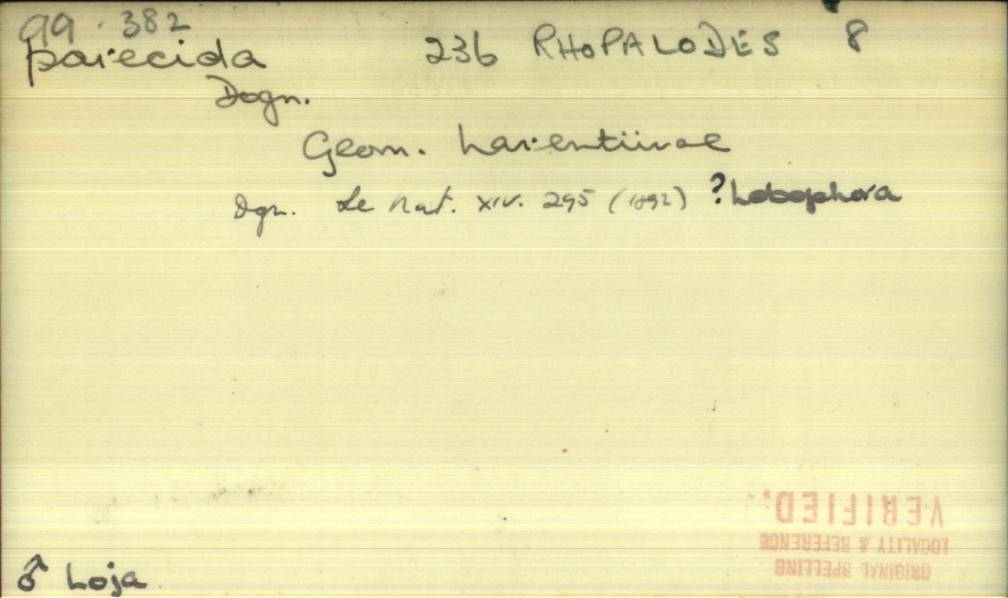 99.382
parecida 236 RHOPALODES 8
Dogn.
Geom. Larentiinae
Dgn. Le Nat. XIV. 295 (1892) ?Lobophora
ORIGINAL SPELLING
LOCALITY & REFERENCE
VERIFIED.
♂ Loja